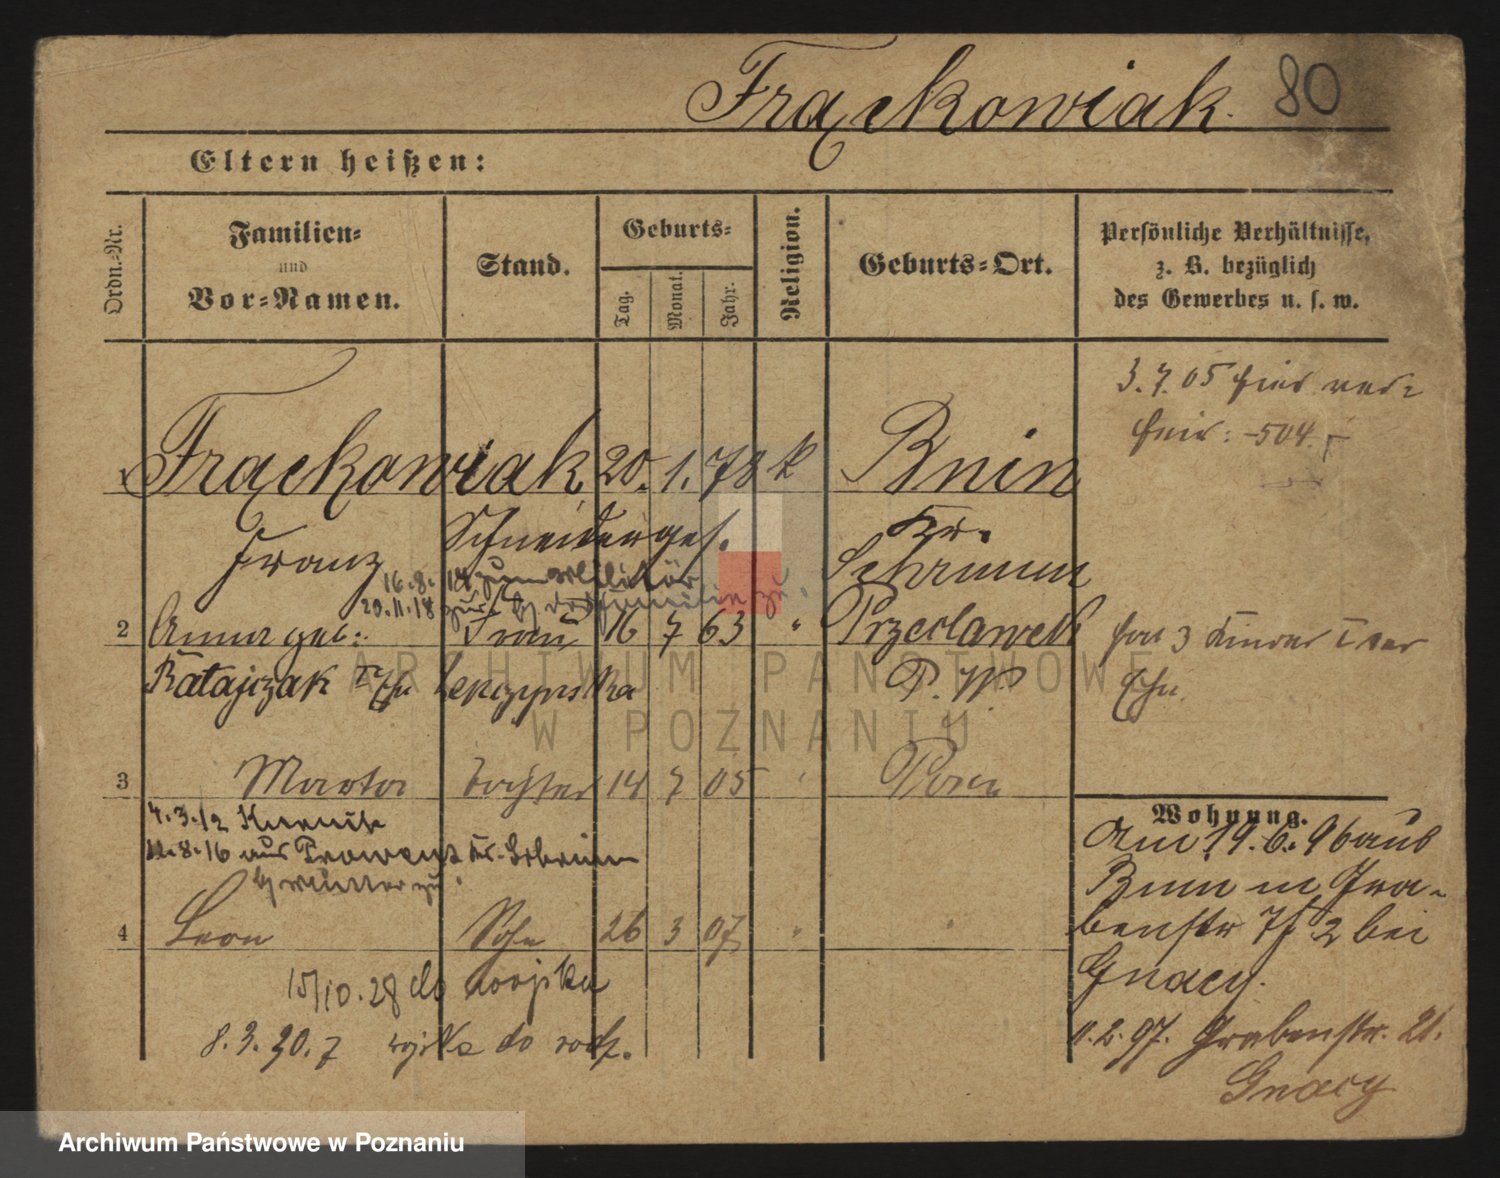 Frąckowiak. 80
Eltern heißen:
Ordn.-Nr.
Familien-
und
Vor-Namen.
Stand.
Geburts-
Tag.
Monat.
Jahr.
Religion.
Geburts-Ort.
Persönliche Verhältnisse,
z. B. bezüglich
des Gewerbes u. s. w.
3.7.05 hier ver-
heir: 504.
1 Frąckowiak 20. 1. 78 k Bnin
Franz Schneiderges. Kr.
16.8. 14 zum Militär Schrimm
20.11.18 zur
2 Anna geb: Frau 16 7 63 " Przeclawek hat 3 Kinder I
Ratajczak P. W. Ehe.
3 Marta Tochter 14 7 05 " Posen
4.3.12 Kurnik
11.8.16 aus
Mutter zu
4 Leon Sohn 26 3 07 " "
15/10.28 do wojska
8.3.30. z wojska do rodz.
Wohnung.
Am 19.6.96 aus
Bnin n Gra-
benstr 7 2 bei
Gnacy.
11.2.97. Grabenstr. 21.
Gnacy
ARCHIWUM PAŃSTWOWE
W POZNANIU
Archiwum Państwowe w Poznaniu